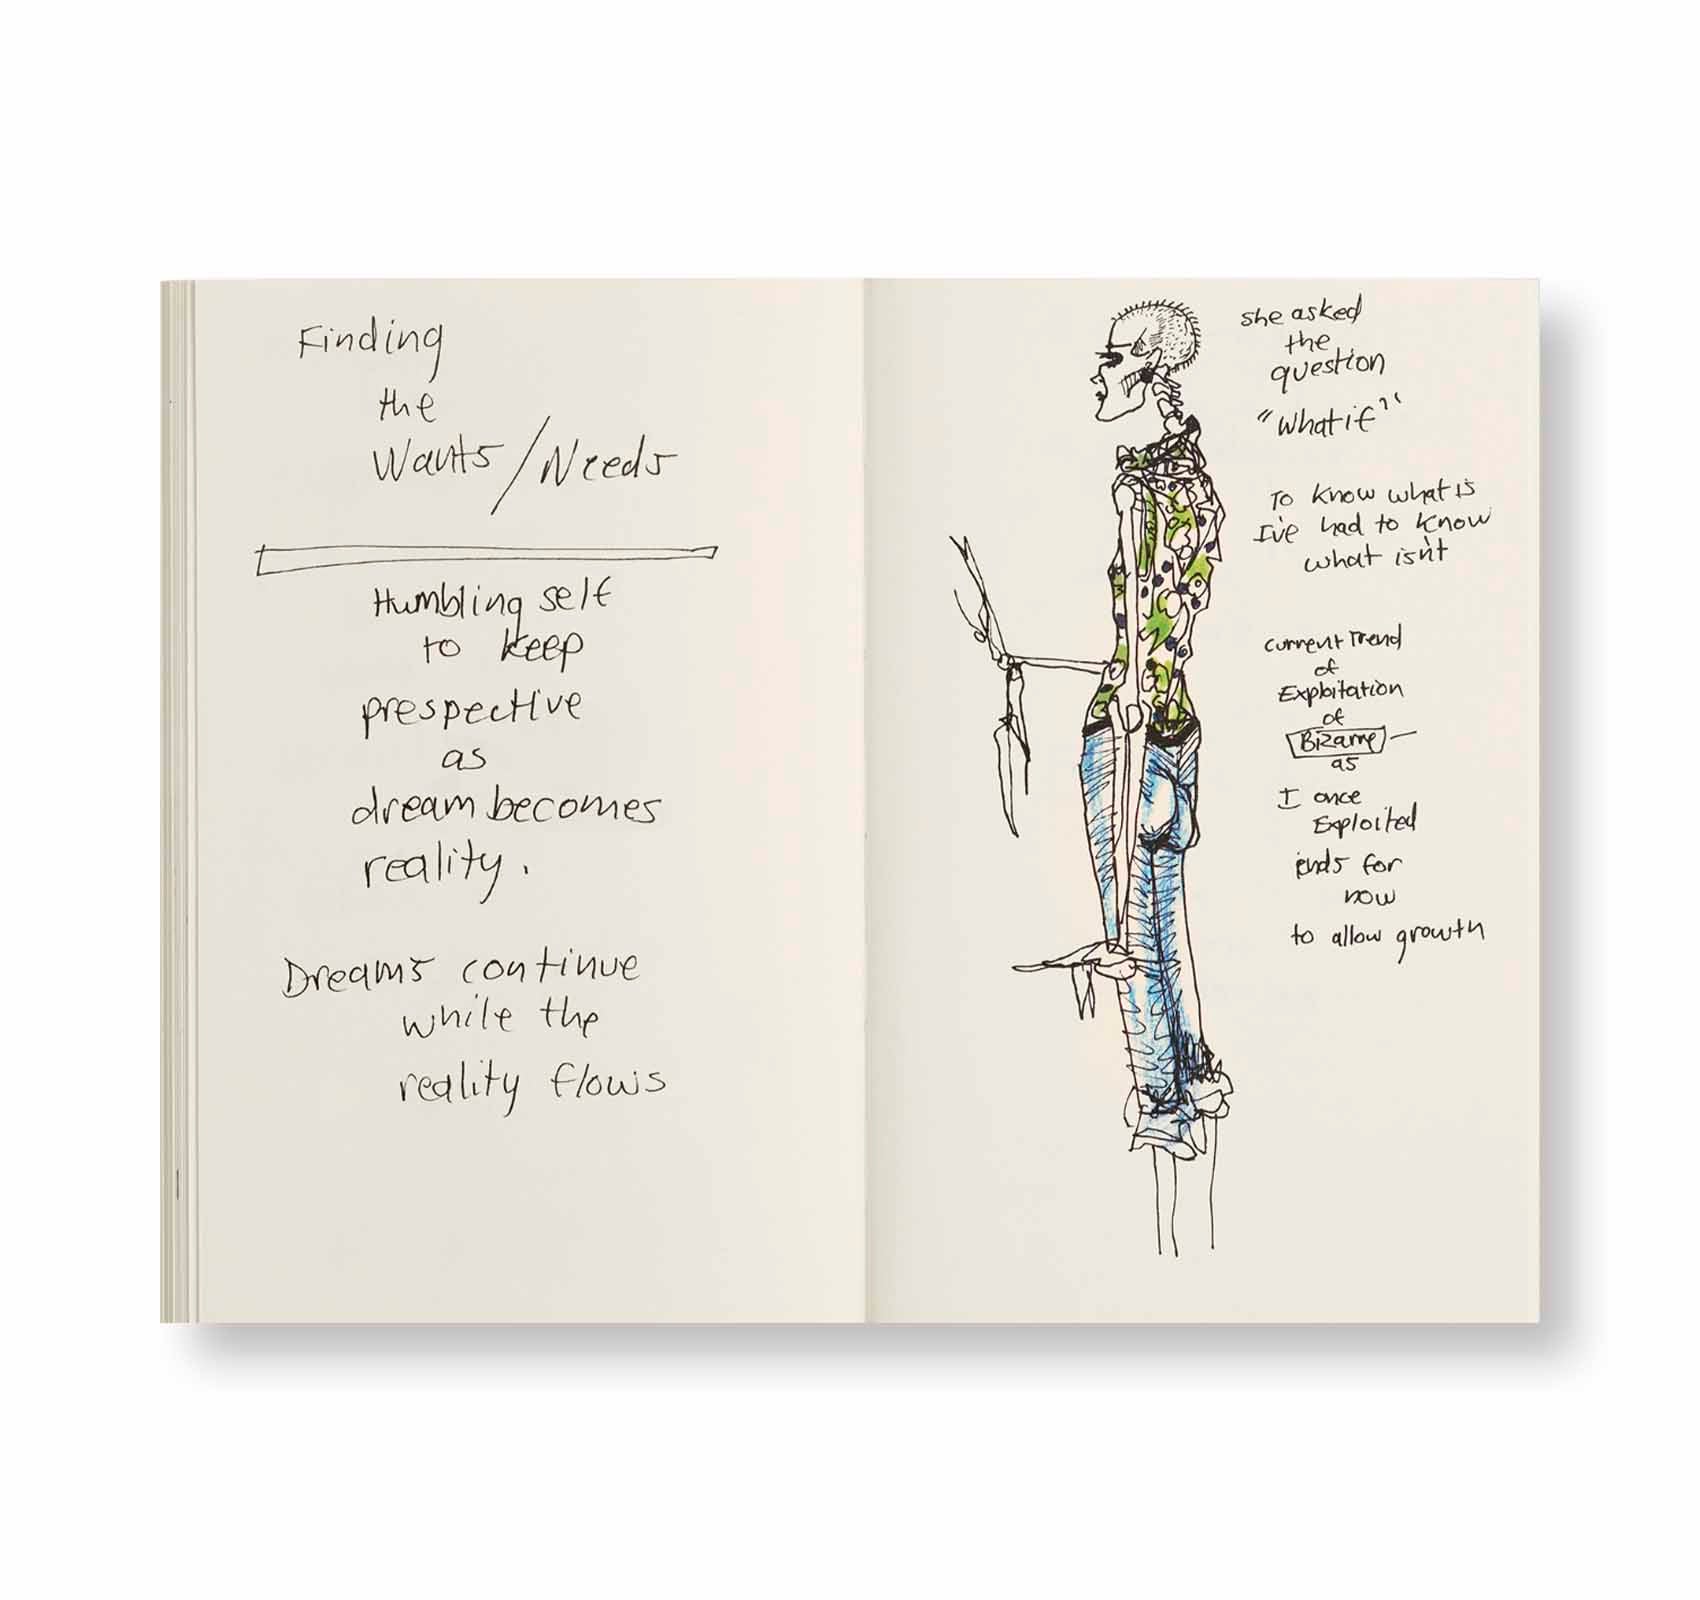 Finding
the
Wants/Needs
Humbling self
to keep
prespective
as
dream becomes
reality.
Dreams continue
while the
reality flows
she asked
the
question
"what if"
To know what is
I've had to know
what isn't
current Trend
of
Exploitation
of
Bizarre —
as
I once
Exploited
ends for
now
to allow growth